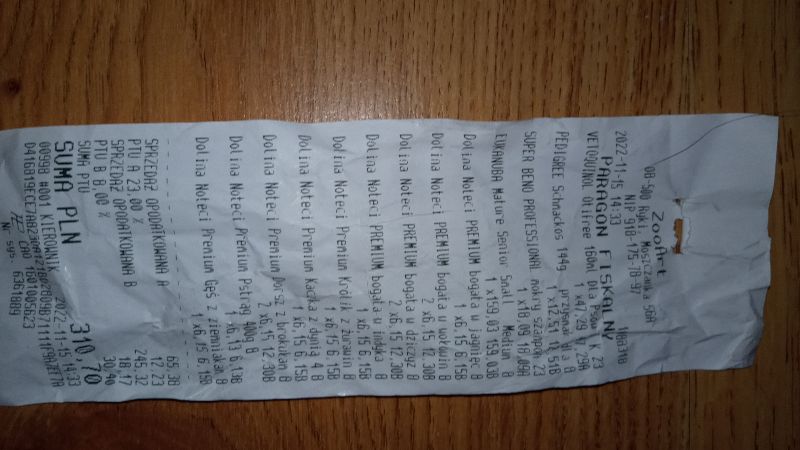 ZooArt
08-500 Ryki, Moszczanka 56A
NIP 918-175-78-97
2022-11-15 14:33
PARAGON FISKALNY
VETOQUINOL Otifree 160ml Dla Psów K 23
1 x47,29 47,29A
PEDIGREE Schmackos 144g - przysmak dla 8
SUPER BENO PROFESSIONAL mokry szampon 23
1 x18,09 18,09A
EUKANUBA Mature Senior Small Medium 8
1 x159,03 159,03B
Dolina Noteci PREMIUM bogata w jagnięc 8
1 x6,15 6,15B
Dolina Noteci PREMIUM bogata w wołowin 8
2 x6,15 12,30B
Dolina Noteci PREMIUM bogata w dziczyz 8
2 x6,15 12,30B
Dolina Noteci PREMIUM bogata w indyka 8
1 x6,15 6,15B
Dolina Noteci Premium Królik z żurawin 8
1 x6,15 6,15B
Dolina Noteci Premium Kaczka z dynią 4 8
1 x6,15 6,15B
Dolina Noteci Premium Dorsz z brokułam 8
2 x6,15 12,30B
Dolina Noteci Premium Pstrąg 400g 8
1 x6,13 6,13B
Dolina Noteci Premium Gęś z ziemniakam 8
1 x6,15 6,15B
SPRZEDAŻ OPODATKOWANA A 65,38
PTU A 23,00 % 12,23
SPRZEDAŻ OPODATKOWANA B 245,32
PTU B 8,00 % 18,17
SUMA PTU 30,40
SUMA PLN 310,70
00598 #001 KIEROWNIK 2022-11-15 14:33
Nr sys. 6361869